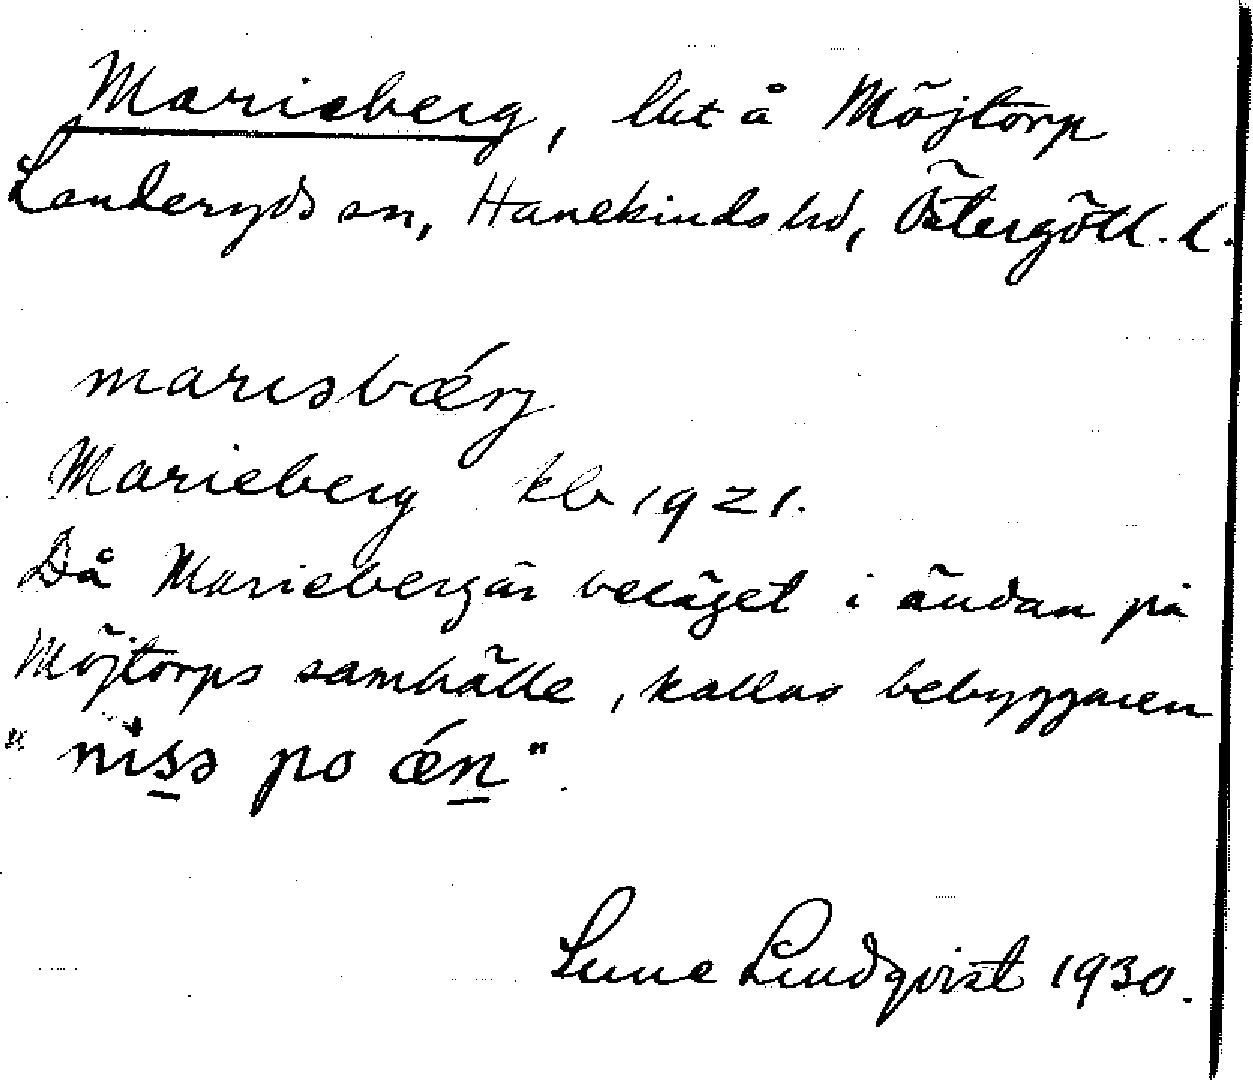 Marieberg, lht å Möjtorp
Landeryds sn, Hanekinds hd, Östergötl. l.
marıəbǽrj
Marieberg kb 1921.
Då Marieberg är beläget i ändan på
Möjtorps samhälle, kallas bebyggaren
"nisə po ǽn".
Sune Lindqvist 1930.